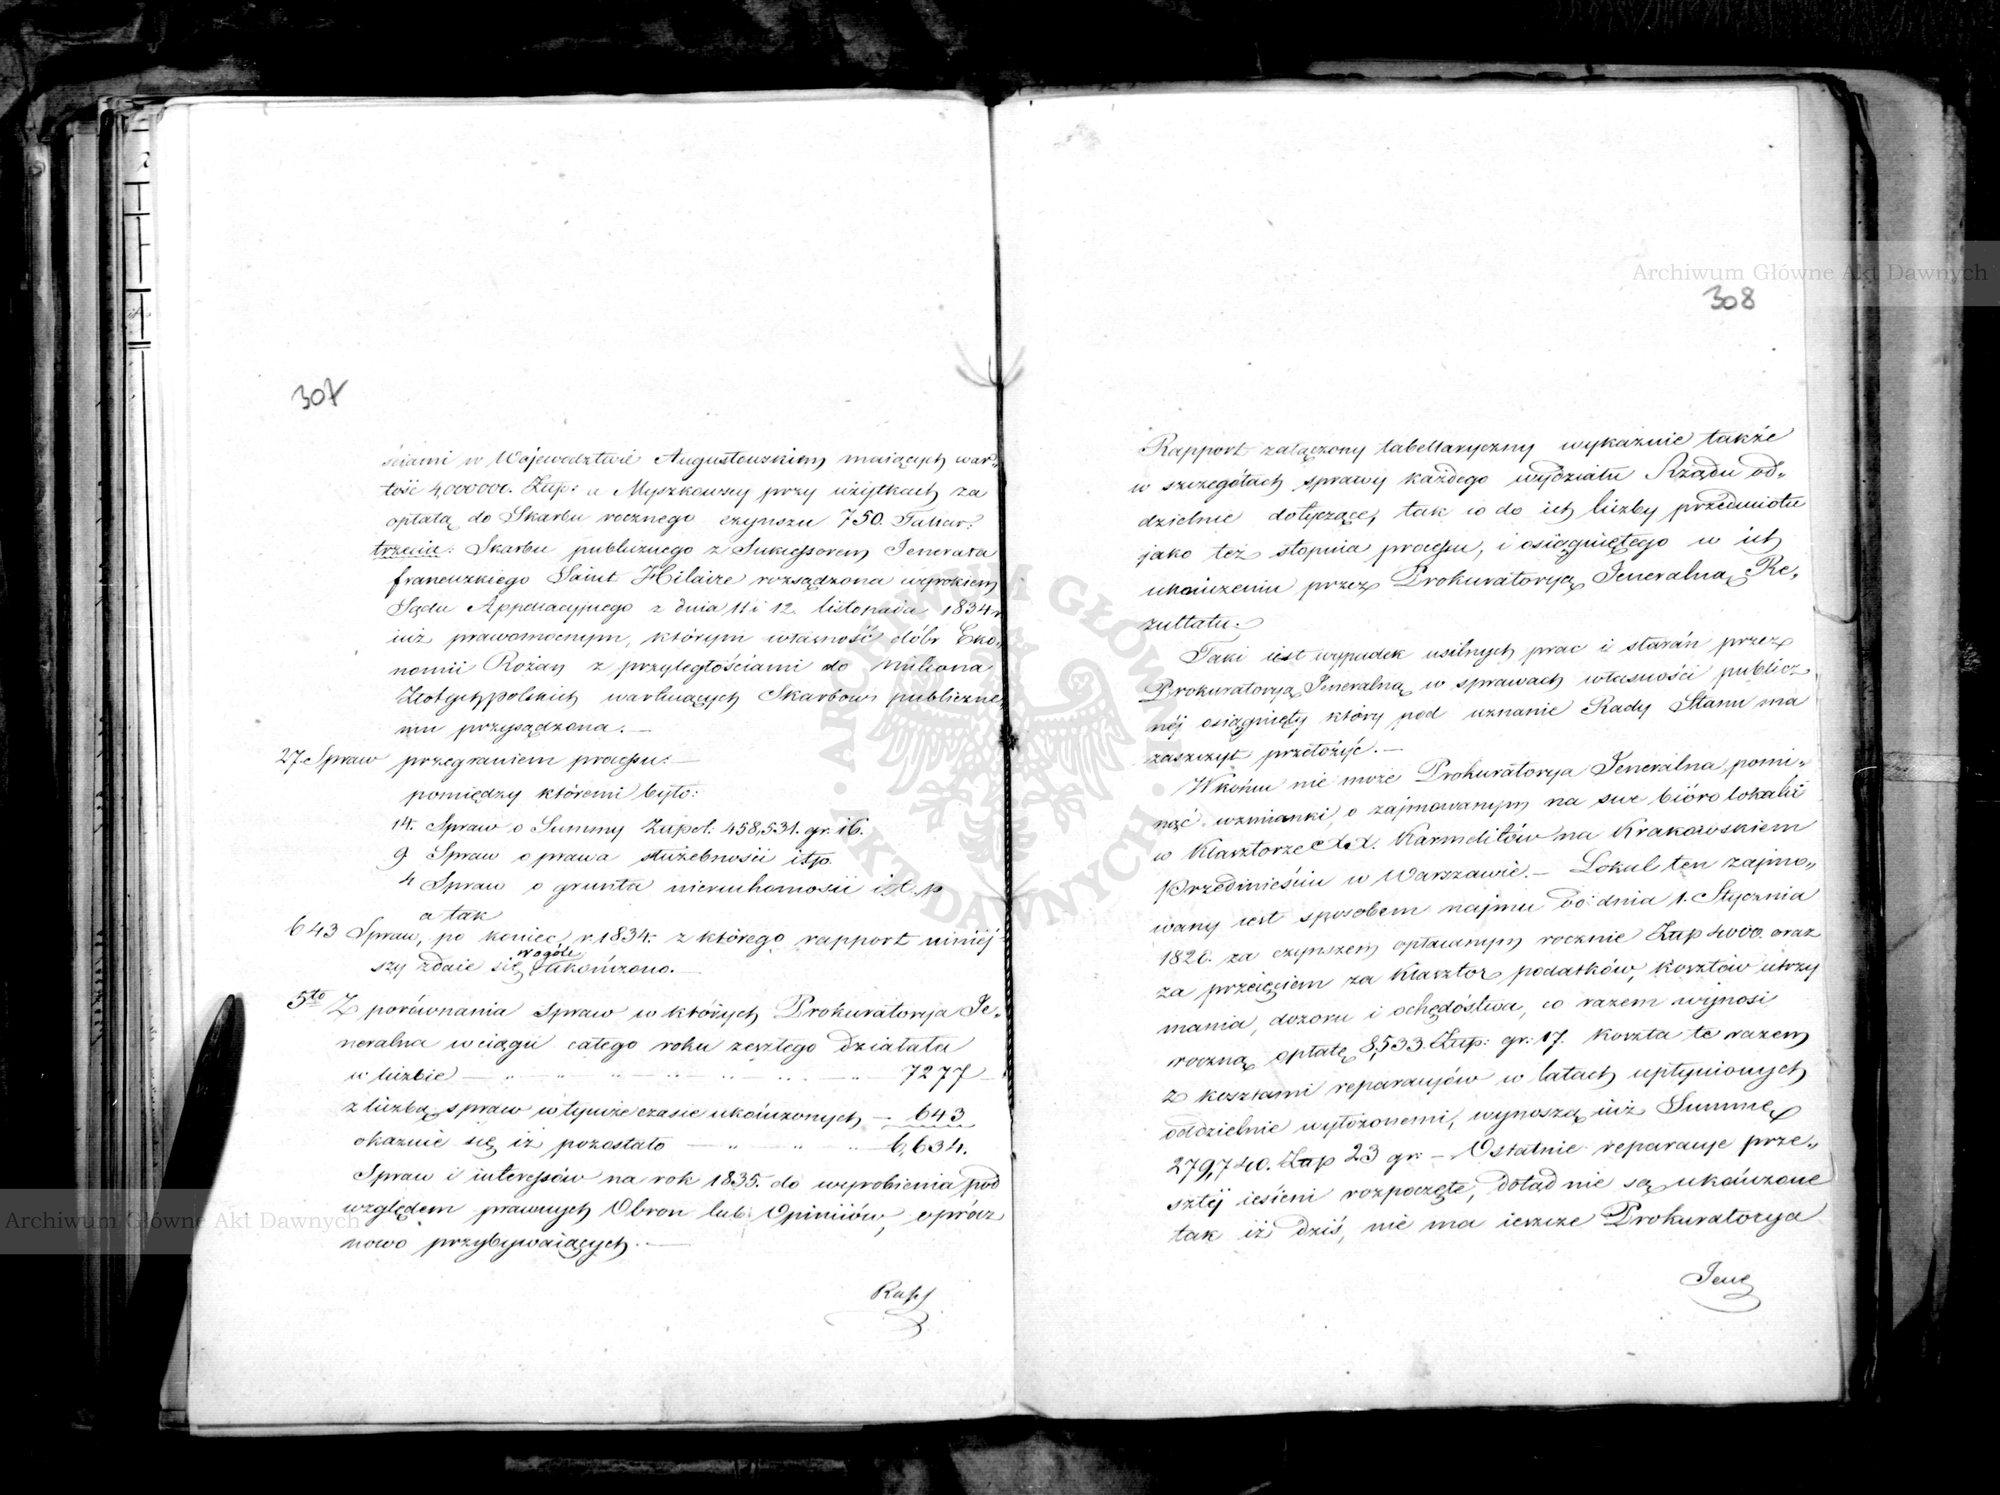 307
ściami w Województwie Augustowskiem maiących war„
tość 4,000000. Złp: a Myszkowscy przy użytkach za
opłatą do Skarbu rocznego czynszu 750. Talar:
trzecia: Skarbu publicznego z Sukcessorem Jenerała
francuzkiego Saint Hilaire rozsądzona wyrokiem
Sądu Appellacyjnego z dnia 11 i 12. listopada 1834 r
iuż prawomocnym, którym własność dóbr Eko„
nomii Rożan z przyległościami do miliona
Złotych polskich wartuiących Skarbowi publiczne„
mu przysądzona. —
27 Spraw przegraniem processu: —
pomiędzy któremi było:
14. Spraw o Summy Złpol: 458,531. gr. 16.
9 Spraw o prawa służebności itp.
4 Spraw o grunta nieruchomości i t. p
a tak
643 Spraw, po koniec r. 1834. z którego rapport niniéj
szy zdaie się wogóle ukończono. —
5to Z porównania Spraw w których Prokuratorya Je„
neralna w ciągu całego roku zeszłego działała
w liczbie — „ „ „ „ „ „ — 7277
z liczbą spraw w tymże czasie ukończonych — 643
okazuie się iż pozostało — „ „ „ — 6,634.
Spraw i interessów na rok 1835. do wyrobienia pod
względem prawnych Obron lub Opiniiów, oprócz
nowo przybywaiących. —
Rapp
308
Rapport załączony tabellaryczny wykazuie także
w szczegółach sprawy każdego wydziału Rządu od„
dzielnie dotyczące, tak co do ich liczby przedmiotu
jako też stopnia processu, i osiągniętego w ich
ukończeniu przez Prokuratoryą Jeneralną Re„
zultatu. —
Taki iest wypadek usilnych prac i starań przez
Prokuratoryą Jeneralną w sprawach własności publicz„
néj osiągnięty który pod uznanie Rady Stanu ma
zaszczyt przełożyć. —
W końcu nie może Prokuratorya Jeneralna pomi„
nąć wzmianki, o zajmowanym na swe bióro lokalu
w Klasztorze XX. Karmelitów na Krakowskiem
Przedmieściu w Warszawie. — Lokal ten zajmo„
wany iest sposobem najmu od dnia 1. Stycznia
1820. za czynszem opłacanym rocznie Złp 4000. oraz
za przeięciem za Klasztor podatków, kosztów utrzy
mania, dozoru i ochędóstwa, co razem wynosi
roczną opłatę 8,533. Złp: gr: 17. koszta te razem
z kosztami reparacyów w latach upłynionych
oddzielnie wyłożonemi, wynoszą iuż Summę
279,740. Złp 23 gr: — Ostatnie reparacye prze„
szłéj iesieni rozpoczęte, dotąd nie są ukończone
tak iż dziś, nie ma ieszcze Prokuratorya
Jene
Archiwum Główne Akt Dawnych
Archiwum Główne Akt Dawnych
ARCHIWUM GŁÓWNE AKT DAWNYCH